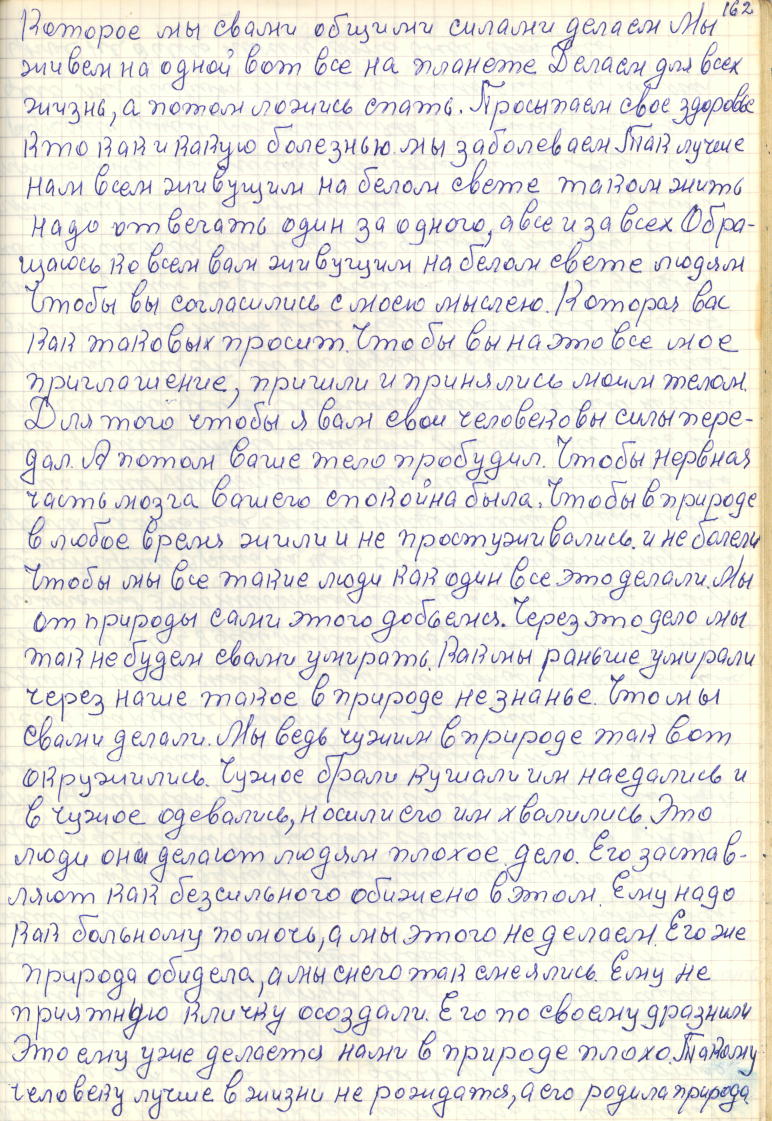 162
Которое мы свами общими силами делаем Мы
живем на одной вот все на планете Делаем для всех
жизнь, а потом ложись спать. Просыпаем свое здоровье
Кто как и какую болезнью мы заболеваем Так лучше
нам всем живущим на белом свете таком жить
надо отвечать один за одного, а все и за всех Обра-
щаюсь ко всем вам живущим на белом свете людям
Чтобы вы согласились с моею мыслею. Которая вас
как таковых просит. Чтобы вы на это все мое
приглашение, пришли и принялись моим телом.
Для того чтобы я вам свои человековы силы пере-
дал. А потом ваше тело пробудил. Чтобы нервная
часть мозга вашего спокойна была. Чтобы в природе
в любое время жили и не простуживались. и не болели
Чтобы мы все такие люди как один все это делали. Мы
от природы сами этого добьемся. Через это дело мы
так не будем свами умирать. Как мы раньше умирали
через наше такое в природе незнанье. Что мы
свами делали. Мы ведь чужим в природе так вот
окружились. Чужое брали кушали им наедались и
в чужое одевались, носили его им хвалились. Это
люди они делают людям плохое дело. Его застав-
ляют как безсильного обижено в этом. Ему надо
как больному помочь, а мы этого не делаем. Его же
природа обидела, а мы снего так смеялись. Ему не
приятную кличку осоздали. Его по своему дразнили
Это ему уже делается нами в природе плохо. Такому
человеку лучше в жизни не рождатся, а его родила природа